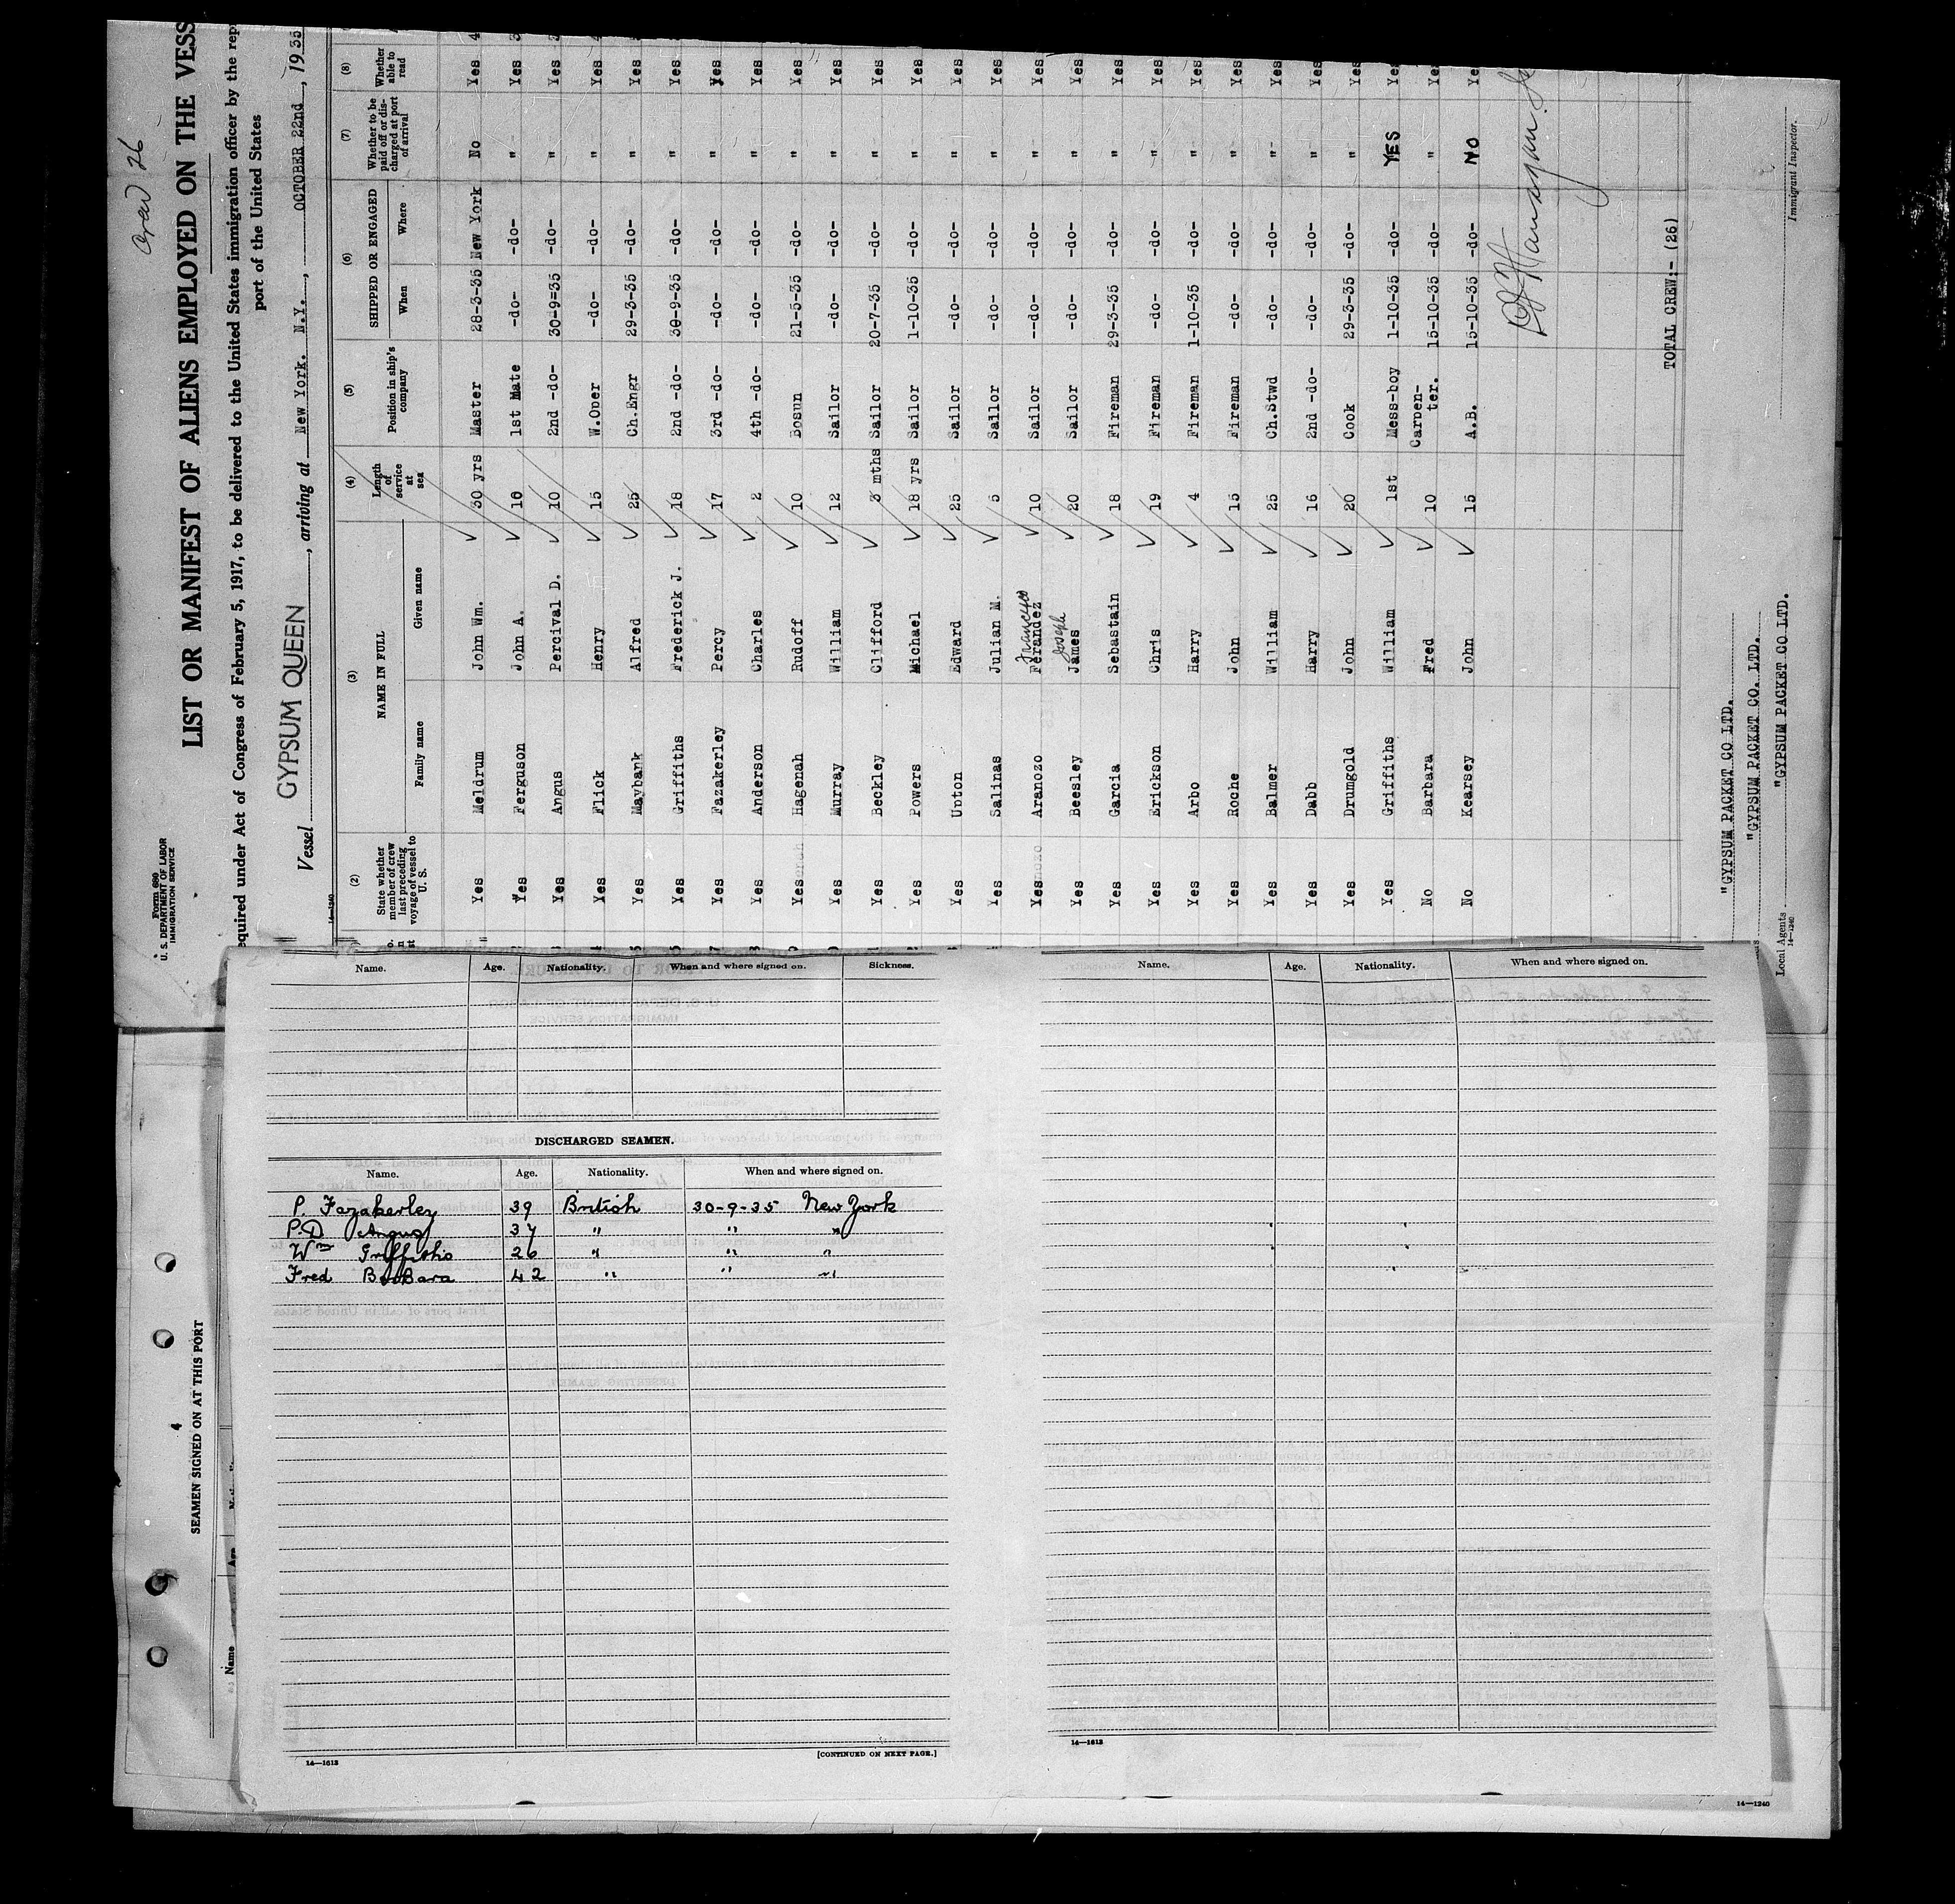 Crew 26
Form 680
U. S. DEPARTMENT OF LABOR
IMMIGRATION SERVICE
LIST OR MANIFEST OF ALIENS EMPLOYED ON THE VESS
equired under Act of Congress of February 5, 1917, to be delivered to the United States immigration officer by the rep
port of the United States
Vessel GYPSUM QUEEN, arriving at New York. N.Y., OCTOBER 22nd, 1935
14—1240
(2) (3) (4) (5) (6) (7) (8)
State whether member of crew last preceding voyage of vessel to U. S. NAME IN FULL Length of service at sea Position in ship's company SHIPPED OR ENGAGED Whether to be paid off or discharged at port of arrival Whether able to read
Family name Given name When Where
Yes Meldrum John Wm. 30 yrs Master 28-3-35 New York No Yes
Yes Ferguson John A. 16 1st Mate -do- -do- " Yes
Yes Angus Percival D. 10 2nd -do- 30-9-35 -do- " Yes
Yes Flick Henry 15 W.Oper -do- -do- " Yes
Yes Maybank Alfred 25 Ch.Engr 29-3-35 -do- " Yes
Yes Griffiths Frederick J. 18 2nd -do- 30-9-35 -do- " Yes
Yes Fazakerley Percy 17 3rd -do- -do- -do- " Yes
Yes Anderson Charles 2 4th -do- -do- -do- " Yes
Yes Hagenah Rudoff 10 Bosun 21-5-35 -do- " Yes
Yes Murray William 12 Sailor -do- -do- " Yes
Yes Beckley Clifford 3 mths Sailor 20-7-35 -do- " Yes
Yes Powers Michael 18 yrs Sailor 1-10-35 -do- " Yes
Yes Upton Edward 25 Sailor -do- -do- " Yes
Yes Salinas Julian M. 5 Sailor -do- -do- " Yes
Yes Aranozo Ferandez 10 Sailor --do- -do- " Yes
Yes Beesley Joseph James 20 Sailor -do- -do- " Yes
Yes Garcia Sebastain 18 Fireman 29-3-35 -do- " Yes
Yes Erickson Chris 19 Fireman -do- -do- " Yes
Yes Arbo Harry 4 Fireman 1-10-35 -do- " Yes
Yes Roche John 15 Fireman -do- -do- " Yes
Yes Balmer William 25 Ch.Stwd -do- -do- " Yes
Yes Dabb Harry 16 2nd -do- -do- -do- " Yes
Yes Drumgold John 20 Cook 29-3-35 -do- " Yes
Yes Griffiths William 1st Mess-boy 1-10-35 -do- YES Yes
No Barbara Fred 10 Carpenter. 15-10-35 -do- " Yes
No Kearsey John 15 A.B. 15-10-35 -do- NO Yes
TOTAL CREW:- (26)
"GYPSUM PACKET CO LTD.
"GYPSUM PACKET CO. LTD.
Local Agents "GYPSUM PACKET CO LTD.
14—1240
Immigrant Inspector.
Name. Age. Nationality. When and where signed on. Sickness.
DISCHARGED SEAMEN.
Name. Age. Nationality. When and where signed on.
P. Fazakerley 39 British 30-9-35 New York
P.D Angus 37 " " "
Wm Griffiths 26 " " "
Fred BarBara 42 " " "
14—1613
[CONTINUED ON NEXT PAGE.]
Name. Age. Nationality. When and where signed on.
14—1613
14—1240
4
SEAMEN SIGNED ON AT THIS PORT
Name Age